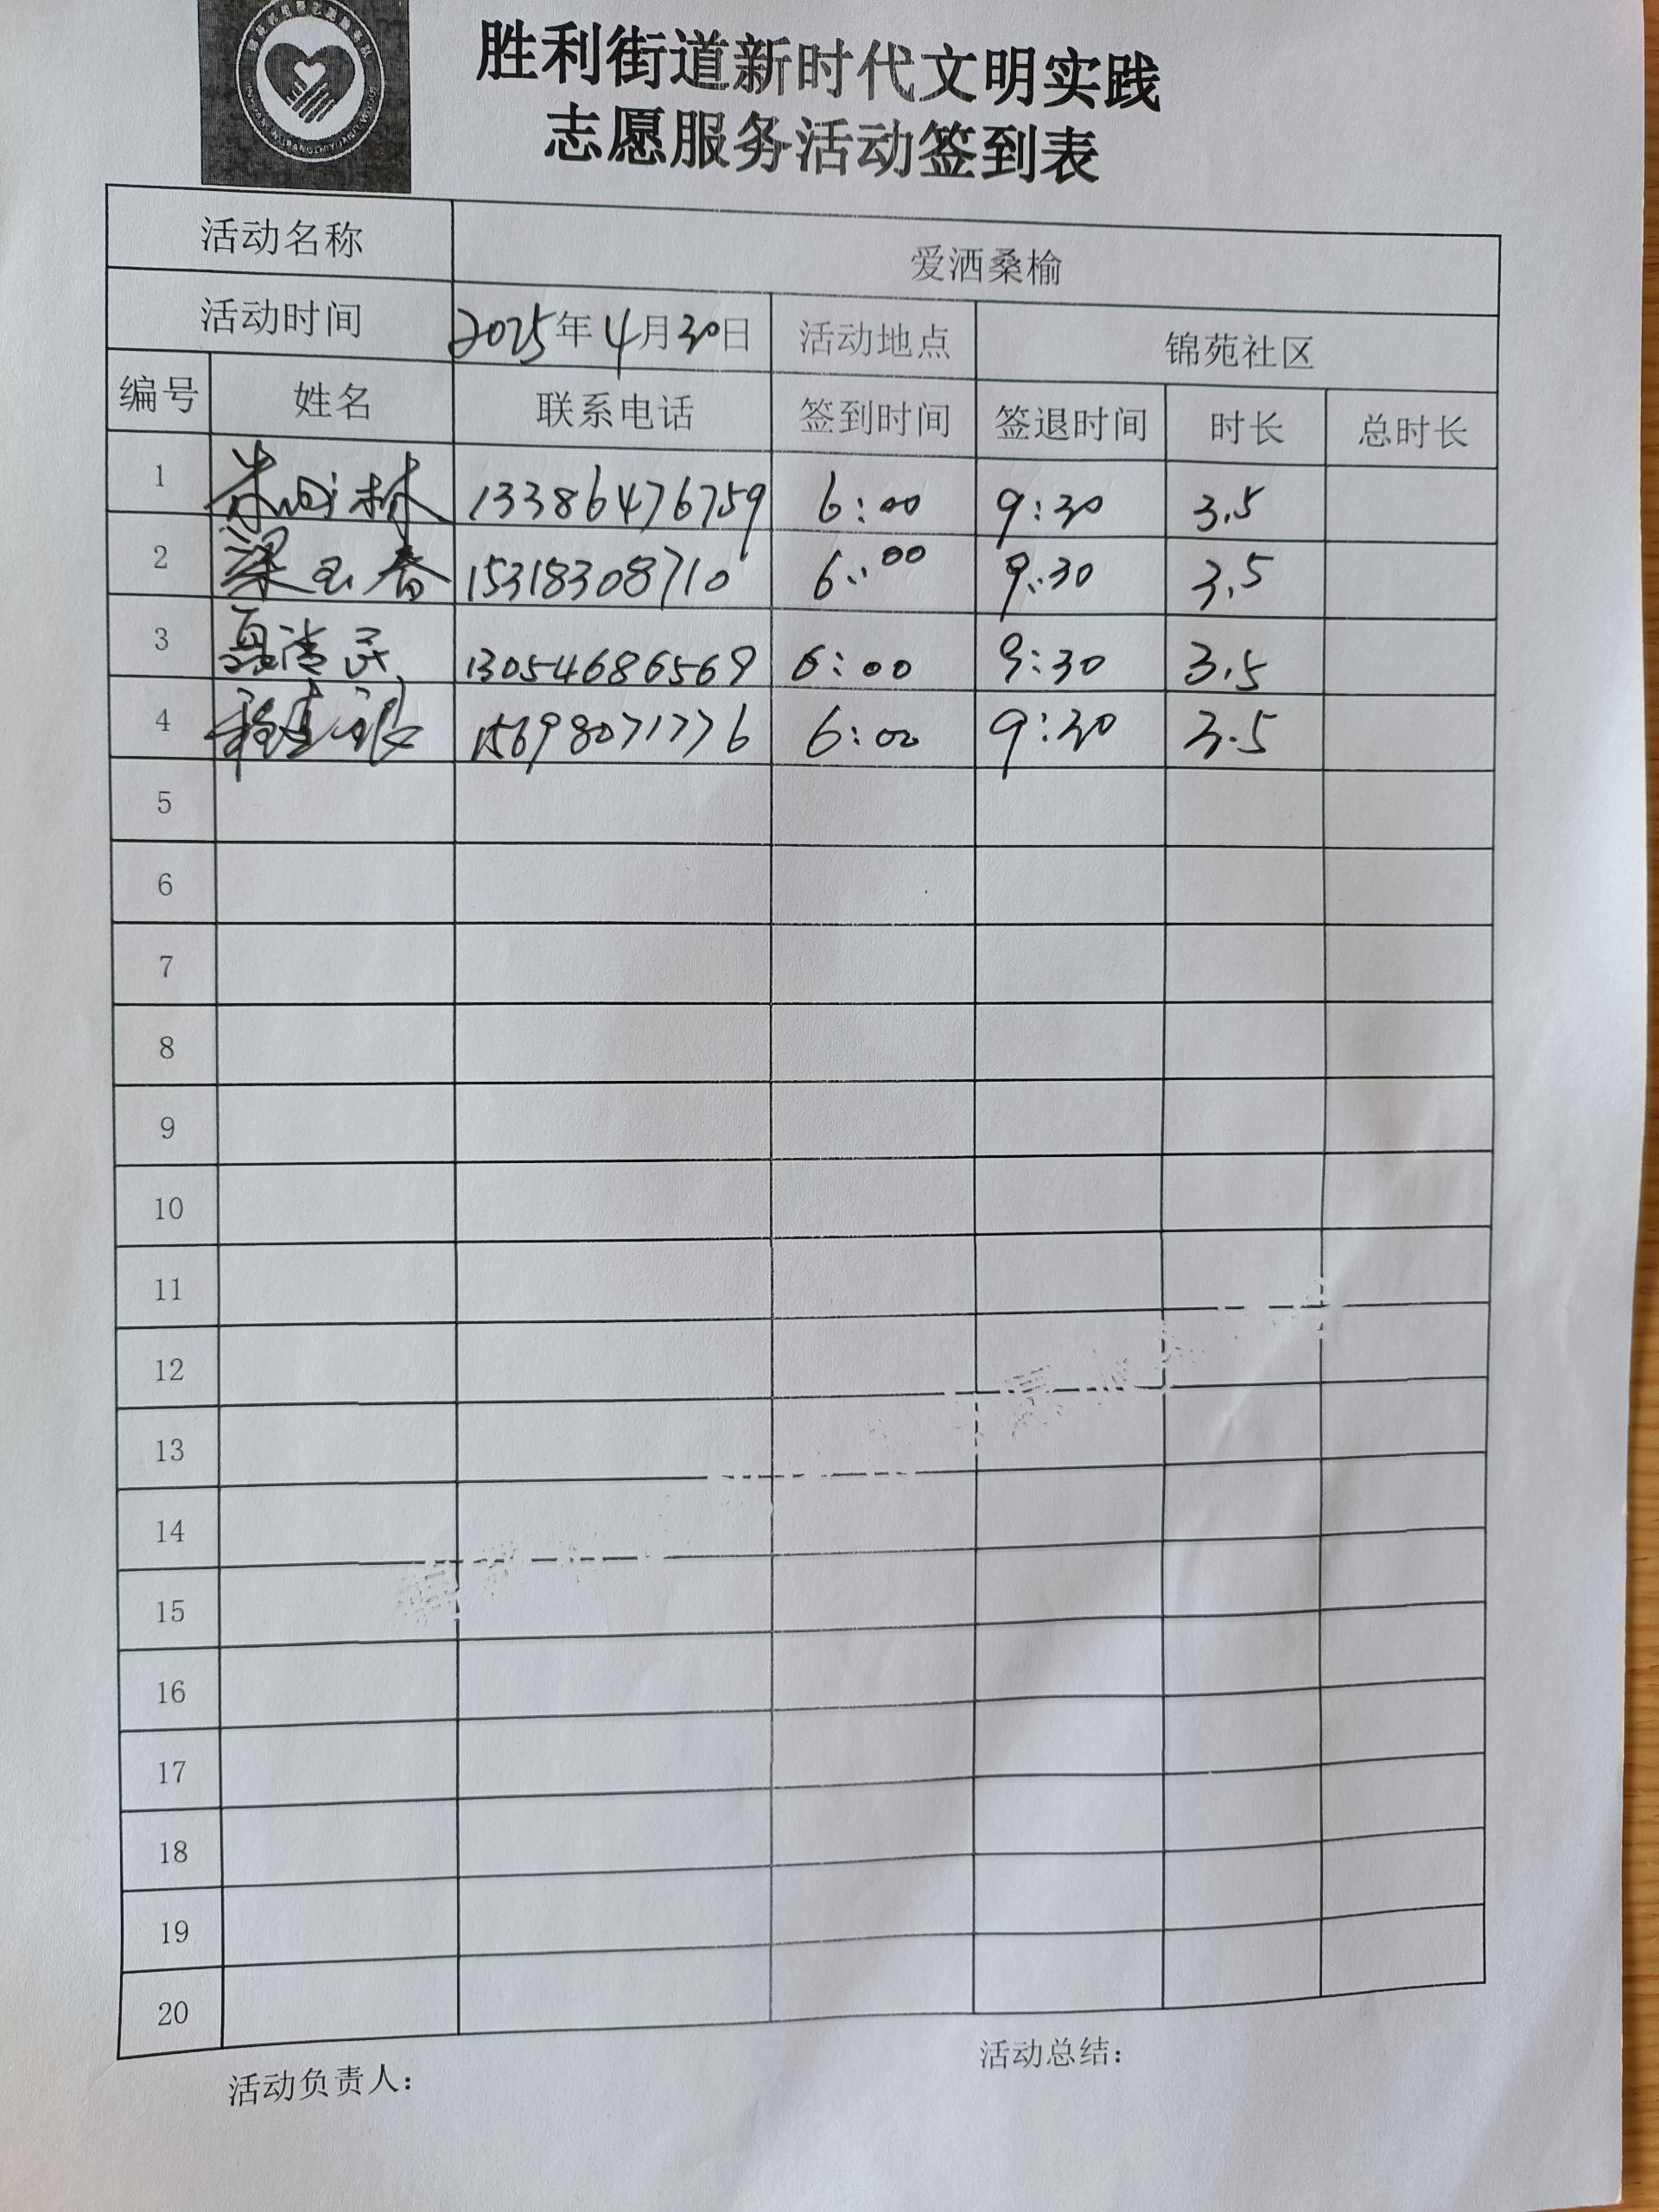 胜利街道新时代文明实践
志愿服务活动签到表
活动名称 爱洒桑榆
活动时间 2025年4月30日 活动地点 锦苑社区
编号 姓名 联系电话 签到时间 签退时间 时长 总时长
1 林 13386476759 6:00 9:30 3.5
2 梁玉春 15318308710 6:00 9:30 3.5
3 聂清民 13054686569 6:00 9:30 3.5
4 15698071776 6:00 9:30 3.5
5
6
7
8
9
10
11
12
13
14
15
16
17
18
19
20
活动负责人： 活动总结：